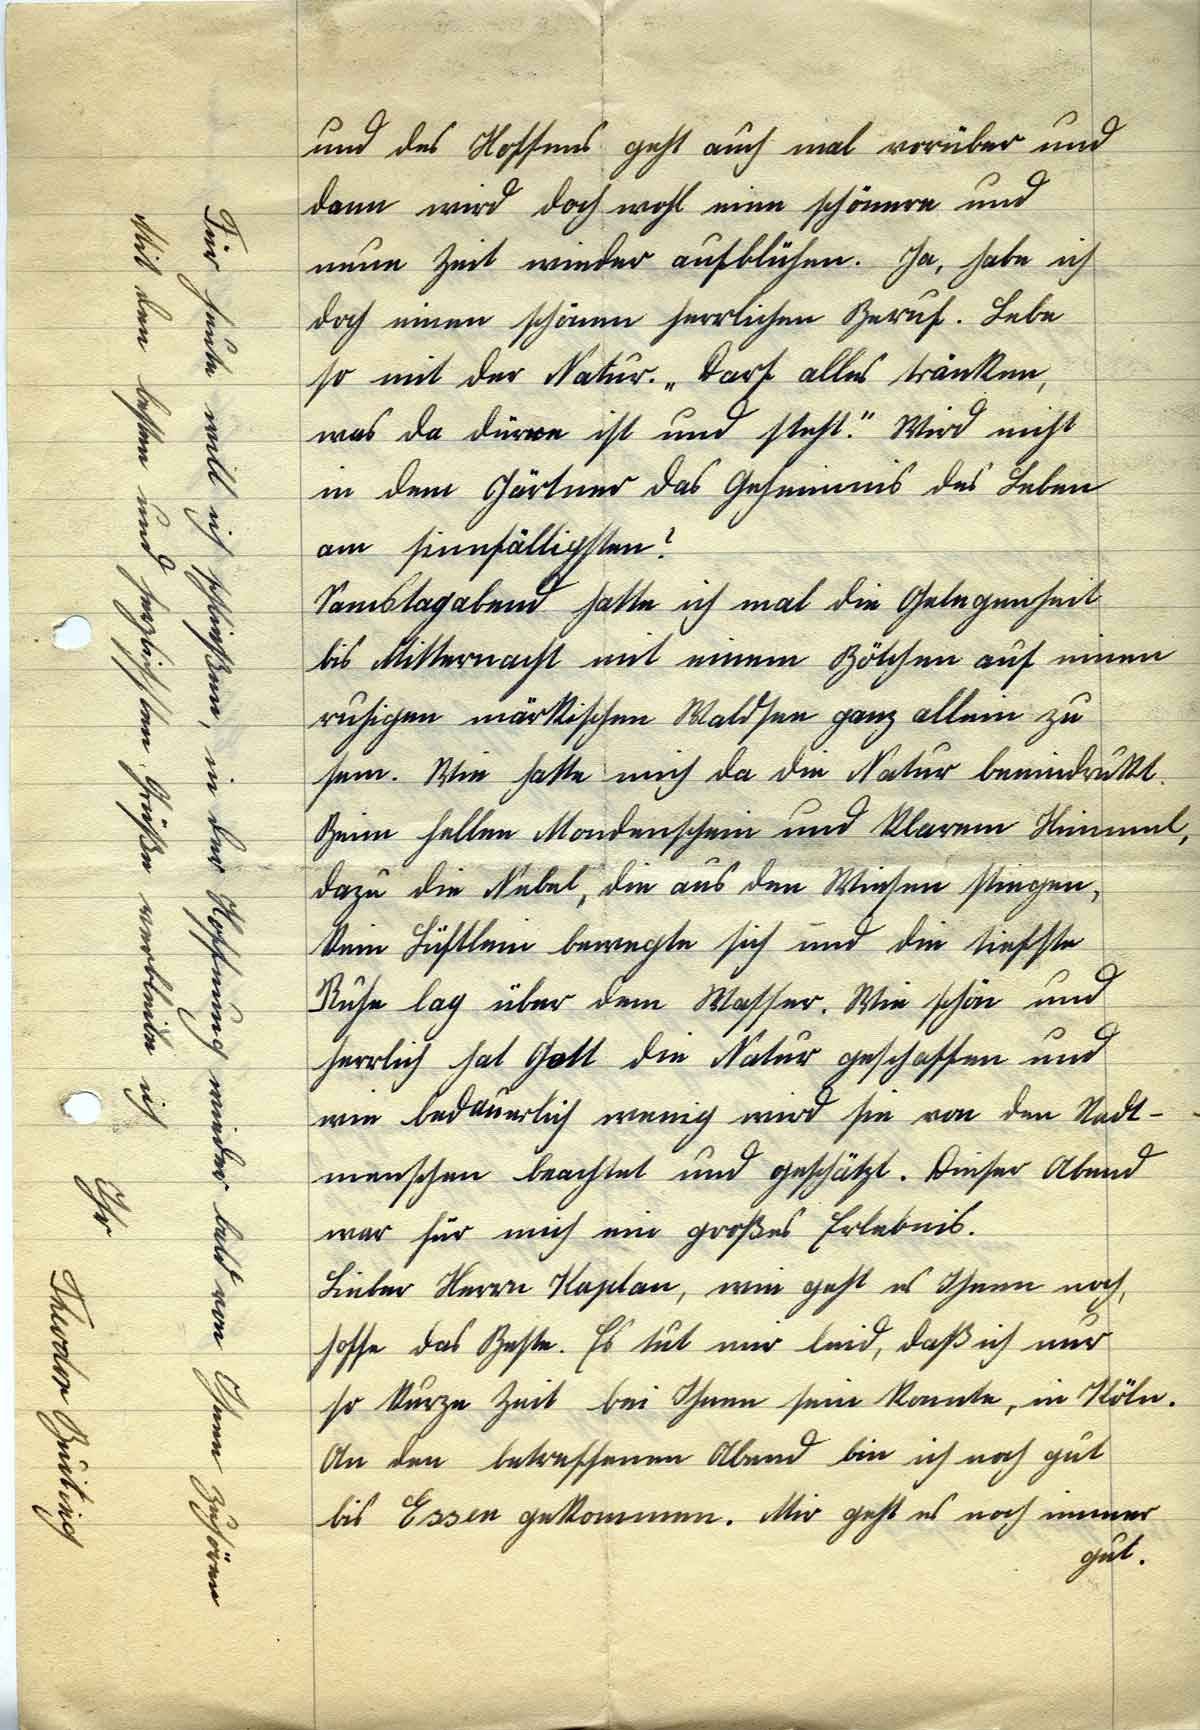 und des Hoffens geht auch mal vorüber und
dann wird doch wohl eine schönere und
neue Zeit wieder aufblühen. Ja, habe ich
doch einen schönen herrlichen Beruf. Lebe
so mit der Natur. „Darf alles tränken,
was da dürre ist und steht." Wird nicht
in dem Gärtner das Geheimnis des Leben
am sinnfälligsten?
Samstagabend hatte ich mal die Gelegenheit
bis Mitternacht mit einem Bötchen auf einen
ruhigen märkischen Waldsee ganz allein zu
sein. Wie hatte mich da die Natur beeindrukt.
Beim hellen Mondenschein und klarem Himmel,
dazu die Nebel, die aus den Wiesen stiegen,
kein Lüftlein bewegte sich und die tiefste
Ruhe lag über dem Wasser. Wie schön und
herrlich hat Gott die Natur geschaffen und
wie bedauerlich wenig wird sie von den Stadt-
menschen beachtet und geschätzt. Dieser Abend
war für mich ein großes Erlebnis.
Lieber Herrn Kaplan, wie geht es Ihnen noch,
hoffe das Beste. Es tut mir leid, daß ich nur
so kurze Zeit bei Ihnen sein konnte, in Köln.
An den betreffenen Abend bin ich noch gut
bis Essen gekommen. Mir geht es noch immer
gut.
Für heute will ich schließen, in der Hoffnung wieder bald von Ihnen zuhören
Mit den besten und herzlichsten Grüße verbleibe ich
Ihr
Theodor Buiting